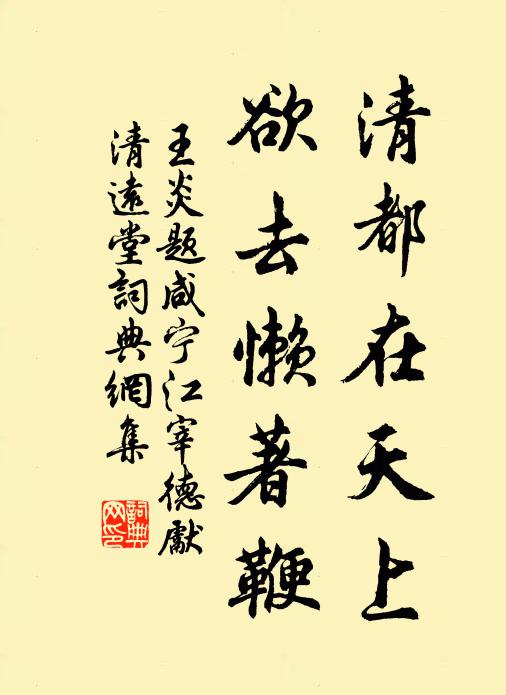 清都在天上
欲去懒著鞭
王炎题咸宁江宰德獻
清遠堂詞典網集
詞典
网印